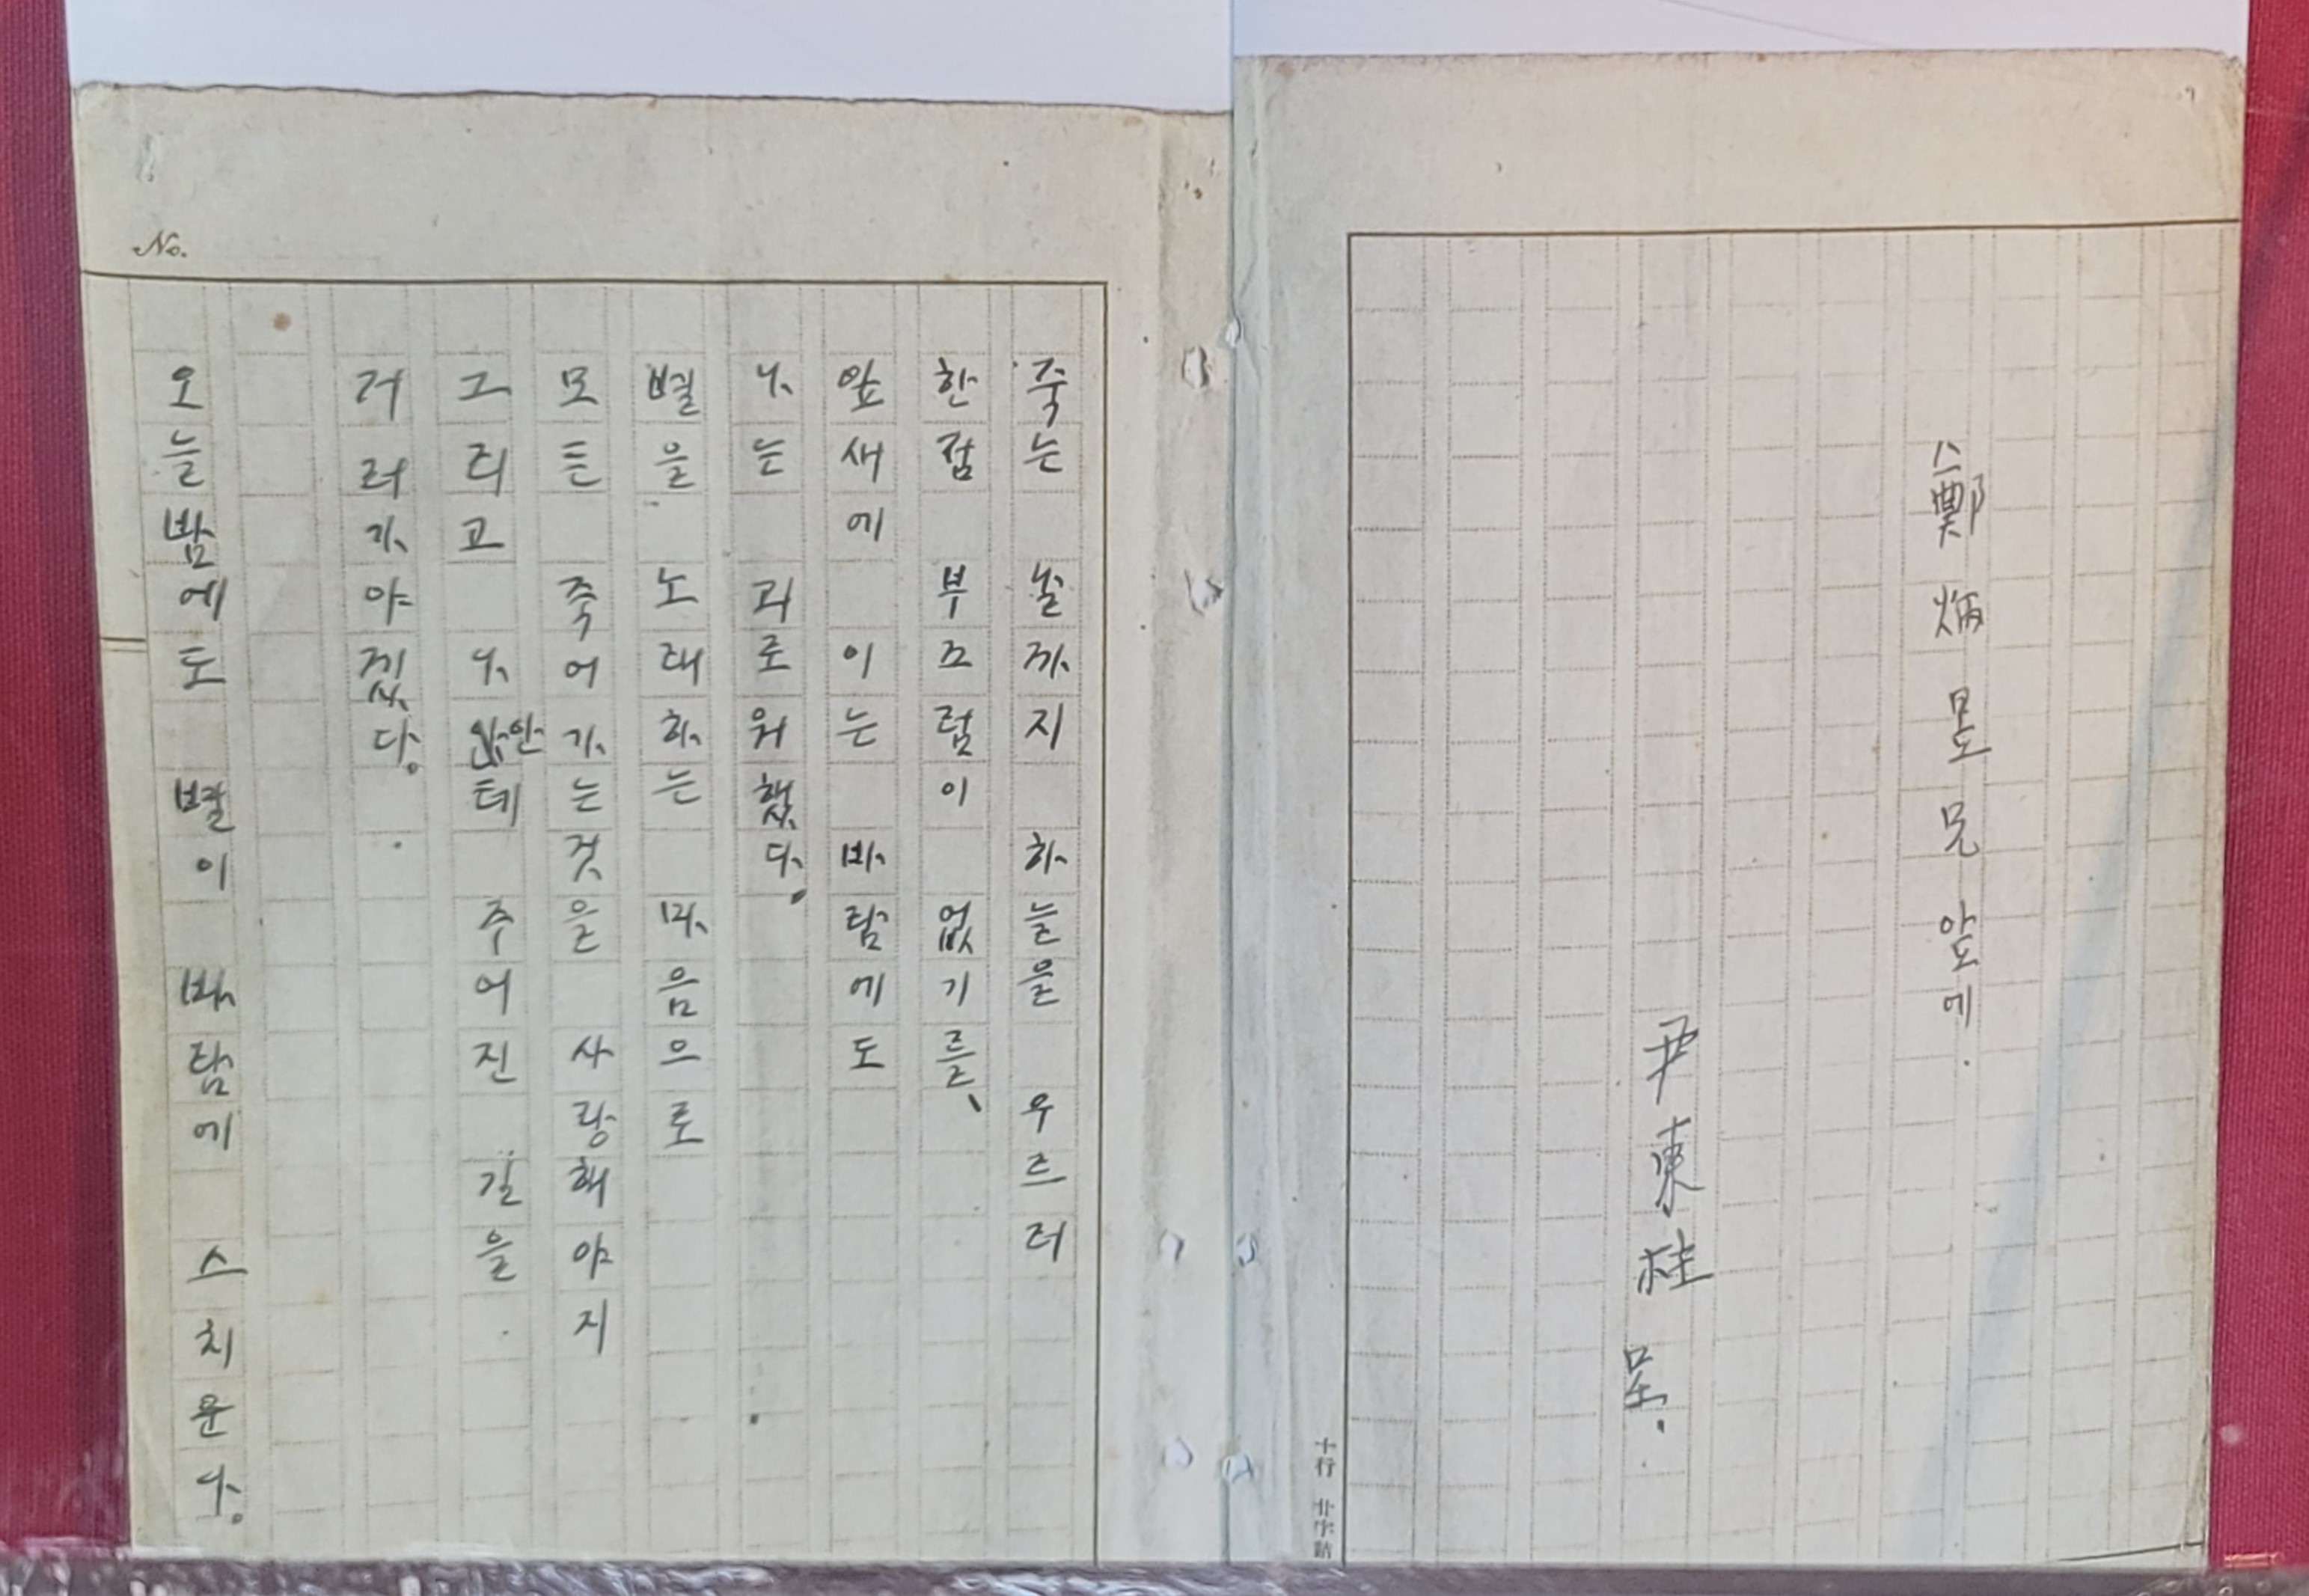 鄭炳昱兄앞에.
尹東柱 呈.
十行 廿字詰
No.
죽는 날까지 하늘을 우르러
한점 부끄럼이 없기를、
잎새에 이는 바람에도
나는 괴로워했다.
별을 노래하는 마음으로
모든 죽어가는것을 사랑해야지
그리고 나안테 주어진 길을
거러가야겠다.
오늘밤에도 별이 바람에 스치운다.